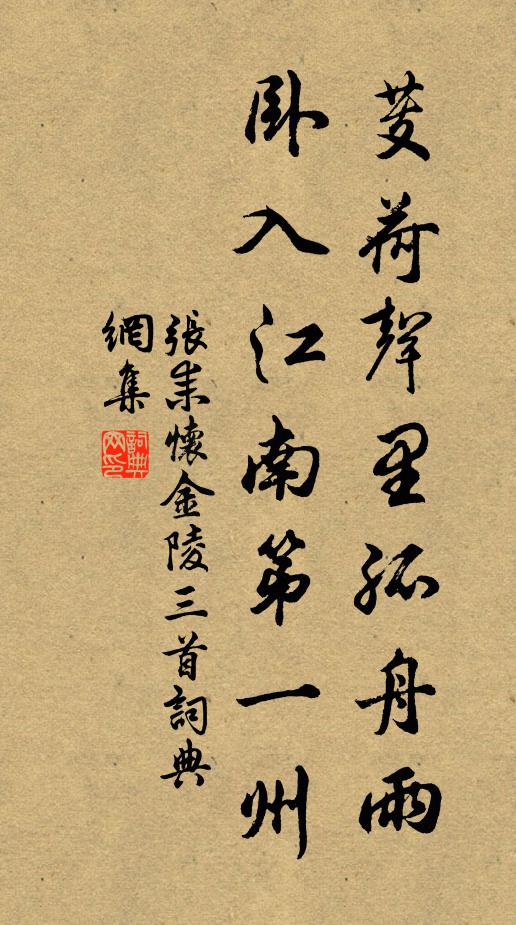 芰荷聲里孤舟雨
臥入江南第一州
張耒懷金陵三首詞典
網集
詞典
网印